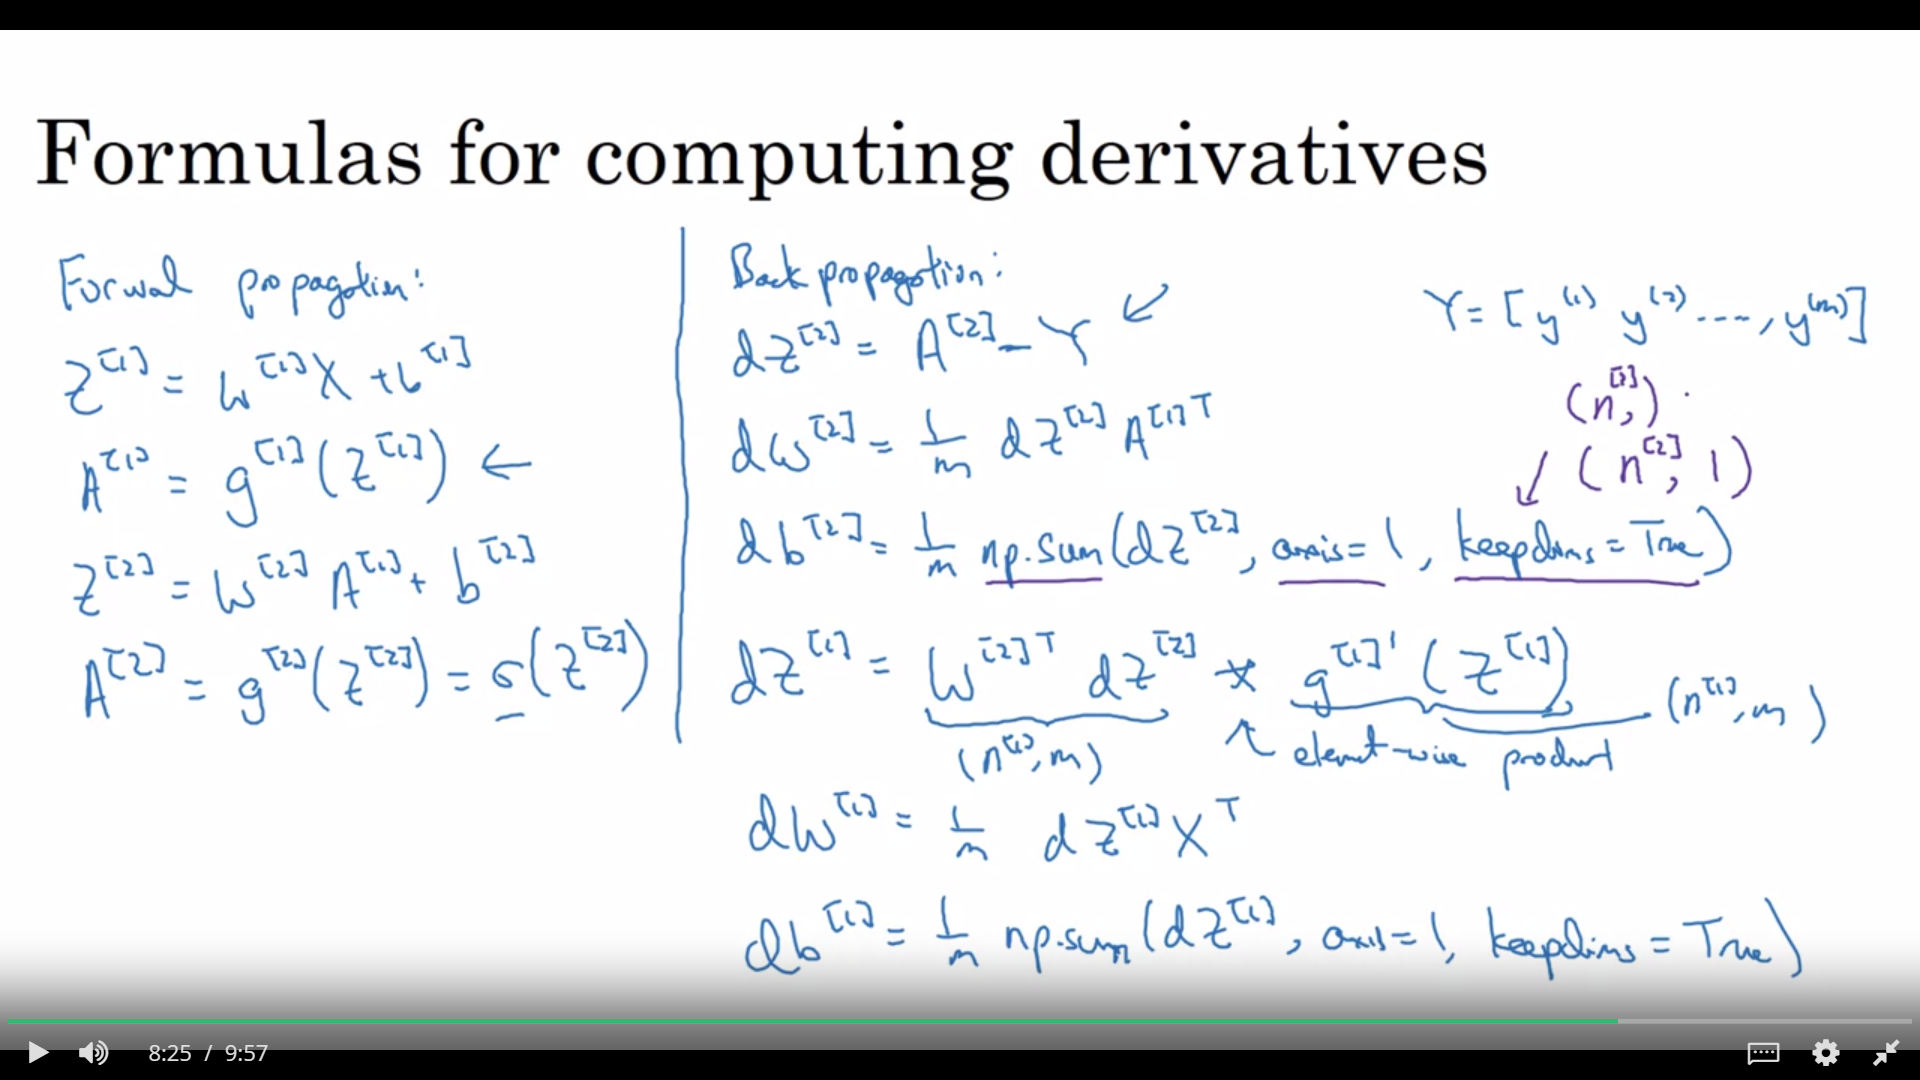 Formulas for computing derivatives
Forwal propagation:
Z^[1] = W^[1]X + b^[1]
A^[1] = g^[1](Z^[1]) ←
Z^[2] = W^[2] A^[1] + b^[2]
A^[2] = g^[2](Z^[2]) = σ(Z^[2])
Back propagation:
dZ^[2] = A^[2] - Y ↙
Y = [y^(1) y^(2) ...., y^(m)]
dW^[2] = 1/m dZ^[2] A^[1]T
(n^[2],) .
↙ (n^[2], 1)
db^[2] = 1/m np.sum(dZ^[2], axis=1, keepdims=True)
dZ^[1] = W^[2]T dZ^[2] * g^[1]'(Z^[1])
(n^[1], m)
element-wise product
(n^[1], m)
dW^[1] = 1/m dZ^[1] X^T
db^[1] = 1/m np.sum(dZ^[1], axis=1, keepdims=True)
8:25 / 9:57